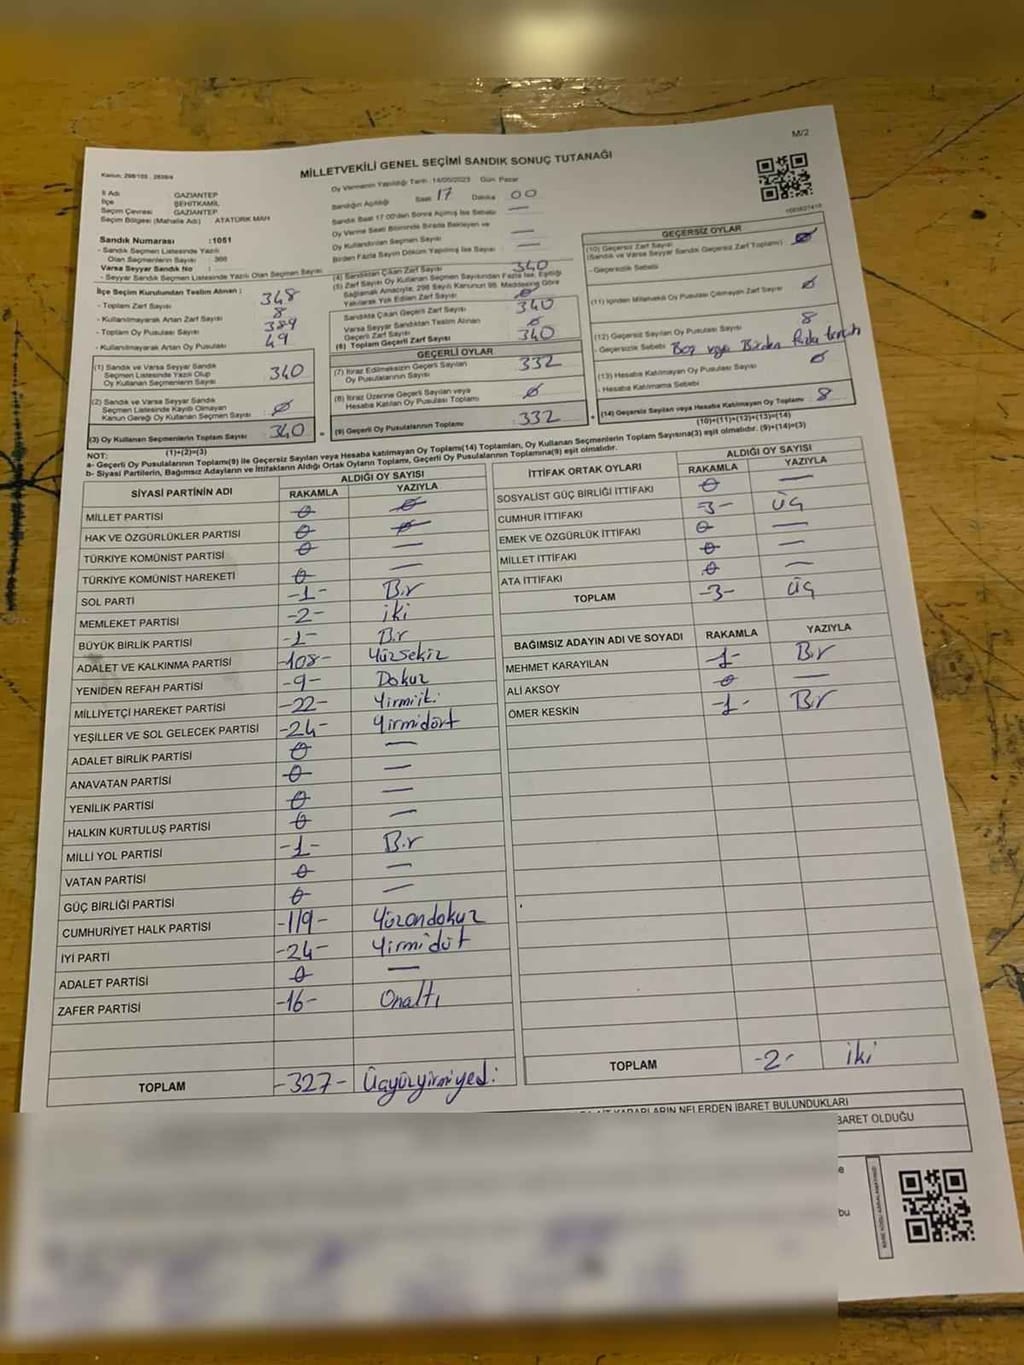 M/2
MİLLETVEKİLİ GENEL SEÇİMİ SANDIK SONUÇ TUTANAĞI
İl Adı GAZİANTEP
İlçe ŞEHİTKAMİL
Seçim Çevresi GAZİANTEP
Seçim Bölgesi (Mahalle Adı) ATATÜRK MAH
Sandık Numarası :1051
- Sandık Seçmen Listesinde Yazılı
Olan Seçmenlerin Sayısı
Varsa Seyyar Sandık No :
- Seyyar Sandık Seçmen Listesinde Yazılı Olan Seçmen Sayısı
Oy Vermenin Yapıldığı Tarih :14/05/2023 Gün: Pazar
Sandığın Açıldığı Saat 17 Dakika 00
Sandık Saat 17.00'den Sonra Açılmış İse Sebebi —
Oy Verme Saati Bitiminde Sırada Bekleyen ve
Oy Kullandırılan Seçmen Sayısı —
Birden Fazla Sayım Döküm Yapılmış İse Sayısı —
İlçe Seçim Kurulundan Teslim Alınan :
- Toplam Zarf Sayısı 348
- Kullanılmayarak Artan Zarf Sayısı 8
- Toplam Oy Pusulası Sayısı 389
- Kullanılmayarak Artan Oy Pusulası 49
(1) Sandık ve Varsa Seyyar Sandık
Seçmen Listesinde Yazılı Olup
Oy Kullanan Seçmenlerin Sayısı 340
(2) Sandık ve Varsa Seyyar Sandık
Seçmen Listesinde Kayıtlı Olmayan
Kanun Gereği Oy Kullanan Seçmen Sayısı 0
(3) Oy Kullanan Seçmenlerin Toplam Sayısı 340
(1)+(2)=(3)
(4) Sandıktan Çıkan Zarf Sayısı 340
(5) Zarf Sayısı Oy Kullanan Seçmen Sayısından Fazla İse, Eşitliği
Sağlamak Amacıyla, 298 Sayılı Kanunun 98. Maddesine Göre
Yakılarak Yok Edilen Zarf Sayısı 0
Sandıkta Çıkan Geçerli Zarf Sayısı 340
Varsa Seyyar Sandıktan Teslim Alınan
Geçerli Zarf Sayısı 0
(6) Toplam Geçerli Zarf Sayısı 340
GEÇERLİ OYLAR
(7) İtiraz Edilmeksizin Geçerli Sayılan
Oy Pusulalarının Sayısı 332
(8) İtiraz Üzerine Geçerli Sayılan veya
Hesaba Katılan Oy Pusulası Toplamı 0
(9) Geçerli Oy Pusulalarının Toplamı 332
GEÇERSİZ OYLAR
(10) Geçersiz Zarf Sayısı 0
(Sandık ve Varsa Seyyar Sandık Geçersiz Zarf Toplamı)
- Geçersizlik Sebebi
(11) İçinden Milletvekili Oy Pusulası Çıkmayan Zarf Sayısı 0
(12) Geçersiz Sayılan Oy Pusulası Sayısı 8
- Geçersizlik Sebebi Boş veya Birden Fazla tercih
(13) Hesaba Katılmayan Oy Pusulası Sayısı 0
- Hesaba Katılmama Sebebi
(14) Geçersiz Sayılan veya Hesaba Katılmayan Oy Toplamı 8
(10)+(11)+(12)+(13)=(14)
NOT:
a- Geçerli Oy Pusulalarının Toplamı(9) ile Geçersiz Sayılan veya Hesaba katılmayan Oy Toplamı(14) Toplamları, Oy Kullanan Seçmenlerin Toplam Sayısına(3) eşit olmalıdır. (9)+(14)=(3)
b- Siyasi Partilerin, Bağımsız Adayların ve İttifakların Aldığı Ortak Oyların Toplamı, Geçerli Oy Pusulalarının Toplamına(9) eşit olmalıdır.
SİYASİ PARTİNİN ADI ALDIĞI OY SAYISI
RAKAMLA YAZIYLA
MİLLET PARTİSİ 0 0
HAK VE ÖZGÜRLÜKLER PARTİSİ 0 0
TÜRKİYE KOMÜNİST PARTİSİ 0 —
TÜRKİYE KOMÜNİST HAREKETİ 0 —
SOL PARTİ -1- Bir
MEMLEKET PARTİSİ -2- iki
BÜYÜK BİRLİK PARTİSİ -1- Bir
ADALET VE KALKINMA PARTİSİ -108- Yüzsekiz
YENİDEN REFAH PARTİSİ -9- Dokuz
MİLLİYETÇİ HAREKET PARTİSİ -22- Yirmiiki
YEŞİLLER VE SOL GELECEK PARTİSİ -24- Yirmidört
ADALET BİRLİK PARTİSİ 0 —
ANAVATAN PARTİSİ 0 —
YENİLİK PARTİSİ 0 —
HALKIN KURTULUŞ PARTİSİ 0 —
MİLLİ YOL PARTİSİ -1- Bir
VATAN PARTİSİ 0 —
GÜÇ BİRLİĞİ PARTİSİ 0 —
CUMHURİYET HALK PARTİSİ -119- Yüzondokuz
İYİ PARTİ -24- Yirmidöt
ADALET PARTİSİ 0 —
ZAFER PARTİSİ -16- Onaltı
TOPLAM -327- Üçyüzyirmiyedi
İTTİFAK ORTAK OYLARI ALDIĞI OY SAYISI
RAKAMLA YAZIYLA
SOSYALİST GÜÇ BİRLİĞİ İTTİFAKI 0 —
CUMHUR İTTİFAKI -3- ÜÇ
EMEK VE ÖZGÜRLÜK İTTİFAKI 0 —
MİLLET İTTİFAKI 0 —
ATA İTTİFAKI 0 —
TOPLAM -3- ÜÇ
BAĞIMSIZ ADAYIN ADI VE SOYADI RAKAMLA YAZIYLA
MEHMET KARAYILAN -1- Bir
ALİ AKSOY 0 —
ÖMER KESKİN -1- Bir
TOPLAM -2- iki
NELERDEN İBARET BULUNDUKLARI
BARET OLDUĞU
bu